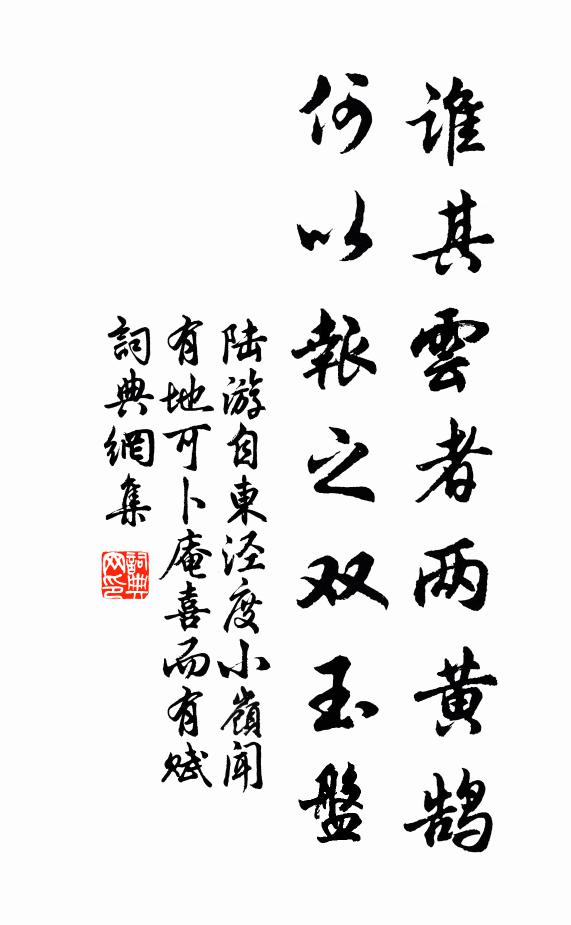 誰其雲者两黄鹄
何以報之双玉盤
陆游自東泾度小嶺聞
有地可卜庵喜而有赋
詞典網集
詞典网印